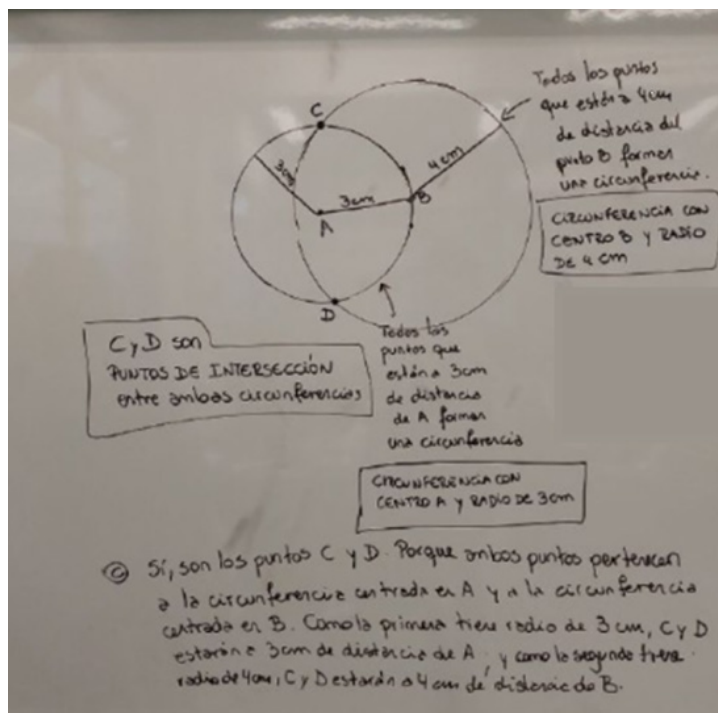 Todos los puntos
que están a 4cm
de distancia del
punto B forman
una circunferencia.
CIRCUNFERENCIA CON
CENTRO B Y RADIO
DE 4 cm
C
3cm
4cm
3cm
B
A
D
C y D son
PUNTOS DE INTERSECCIÓN
entre ambas circunferencias
Todos los
puntos que
están a 3cm
de distancia
de A forman
una circunferencia
CIRCUNFERENCIA CON
CENTRO A Y RADIO DE 3cm
c Sí, son los puntos C y D. Porque ambos puntos pertenecen
a la circunferencia centrada en A y a la circunferencia
centrada en B. Como la primera tiene radio de 3 cm, C y D
estarán a 3cm de distancia de A, y como la segunda tiene
radio de 4cm, C y D estarán a 4 cm de distancia de B.